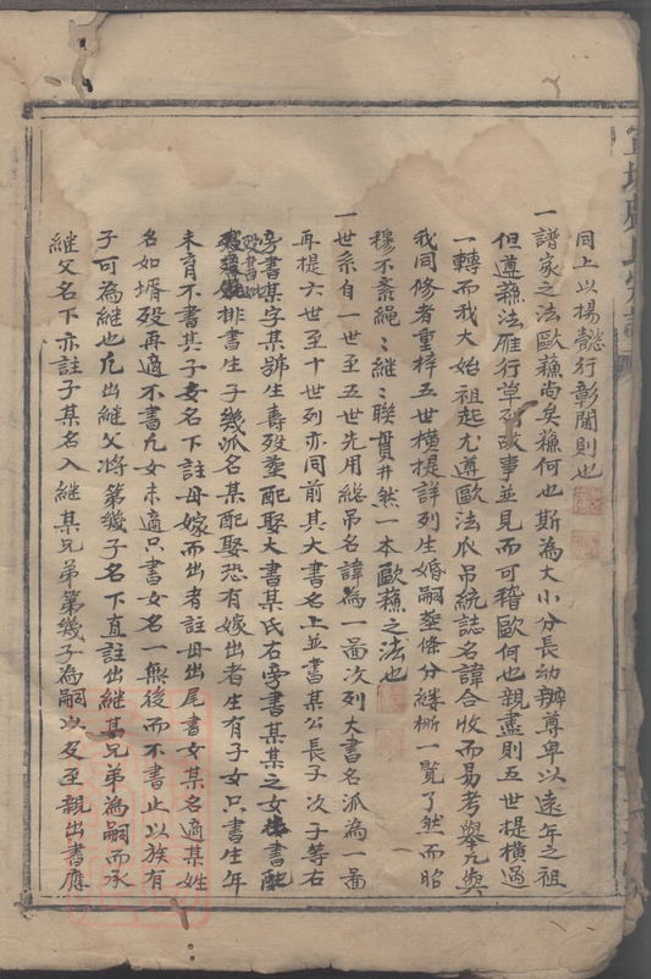 同上以揚懿行彰閫則也
一譜家之法歐蘓尚矣蘓何也斯為大小分長幼辨尊卑以遠年之祖
但遵蘓法雁行單列故事並見而可稽歐何也親盡則五世提橫過
一轉而我大始祖起尤遵歐法爪吊統誌名諱合收而易考舉凡與
我同修者重梓五世橫提詳列生婚嗣塟條分縷晰一覽了然而昭
穆不紊繩〻継〻聯貫井然一本歐蘓之法也
一世系自一世至五世先用総吊名諱為一啚次列大書名派為一啚
再提六世至十世列亦同前其大書名上並書某公長子次子等右
旁書某字某號生壽殁塟配娶大書某氏右旁書某某之女 書配
殁塟 排書生子幾派名某配娶恐有嫁出者生有子女只書生年
未育不書其子女名下註母嫁而出者註母出尾書女某名適某姓
名如壻殁再適不書凢女未適只書女名一無後而不書止以族有
子可為継也凢出継父將第幾子名下直註出継某兄弟為嗣而承
継父名下亦註子某名入継某兄弟第幾子為嗣以及至親出書應